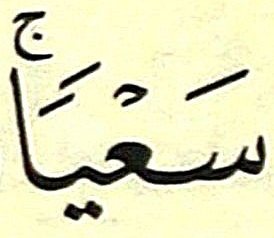 سَعْيًاۚ